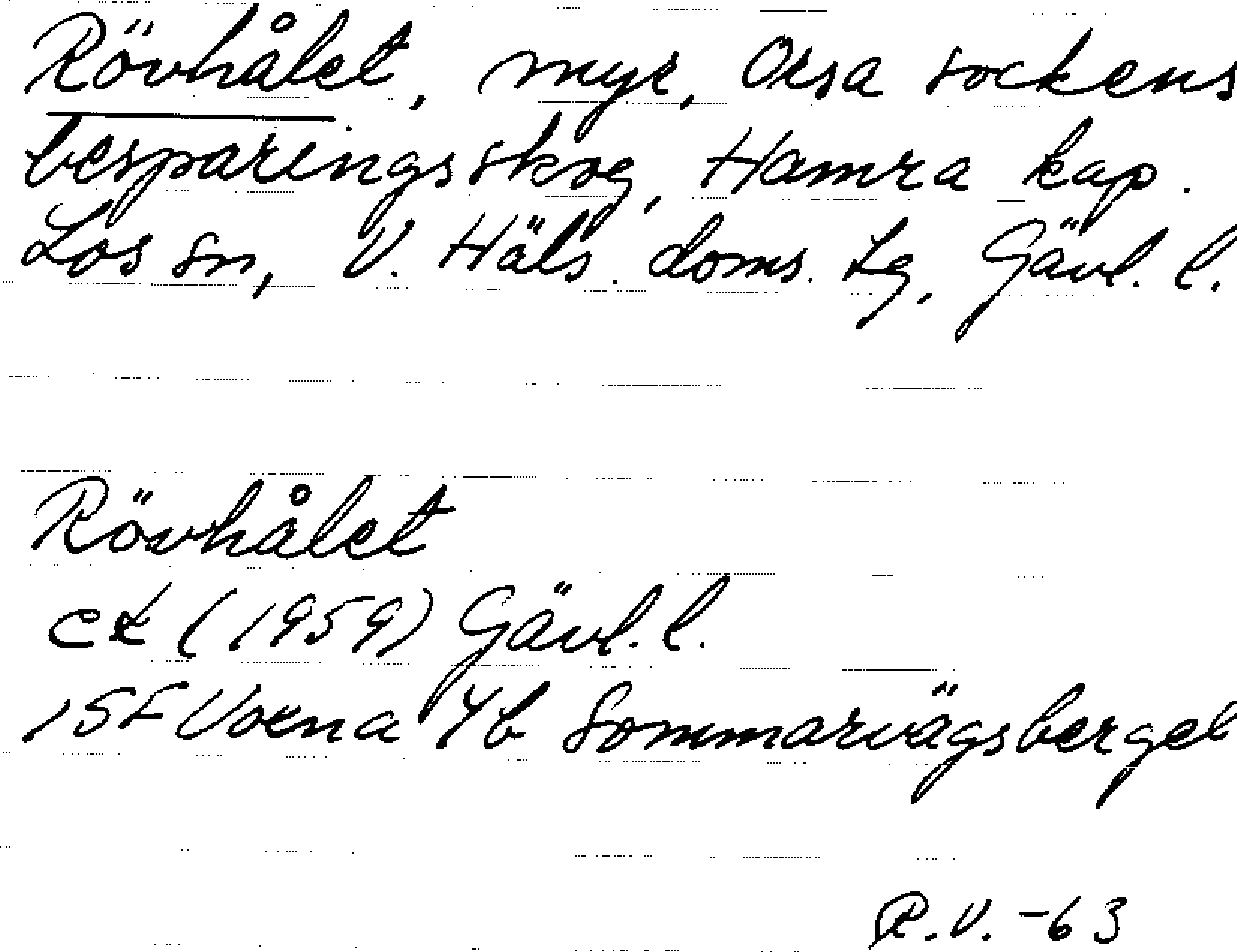 Rövhålet, myr, Orsa sockens
besparingsskog, Hamra kap.
Los sn, V. Häls. doms. lg, Gävl. l.
Rövhålet
ek (1959) Gävl. l.
15F Voxna 4b Sommarvägsberget
R.V. -63